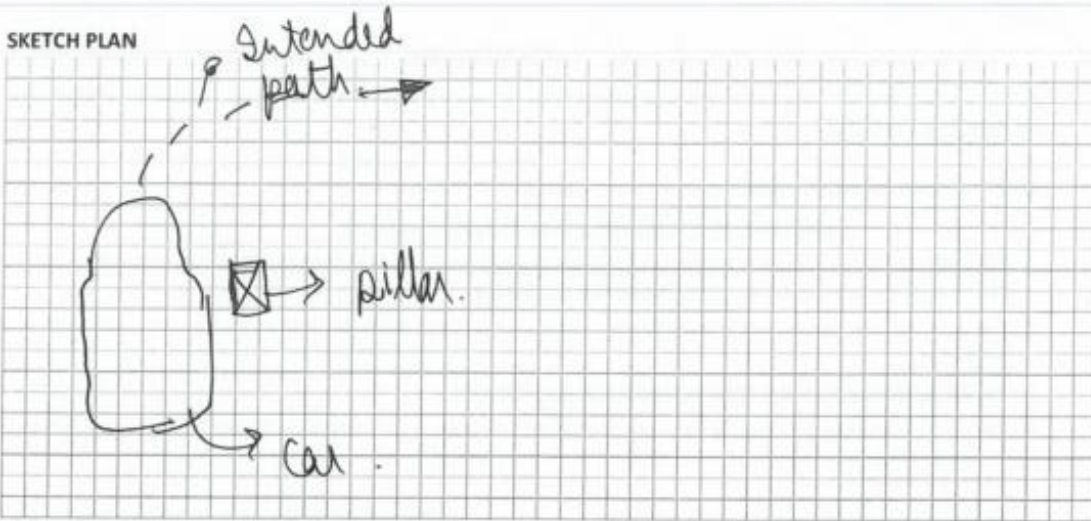 SKETCH PLAN
Intended
path
pillar.
car.